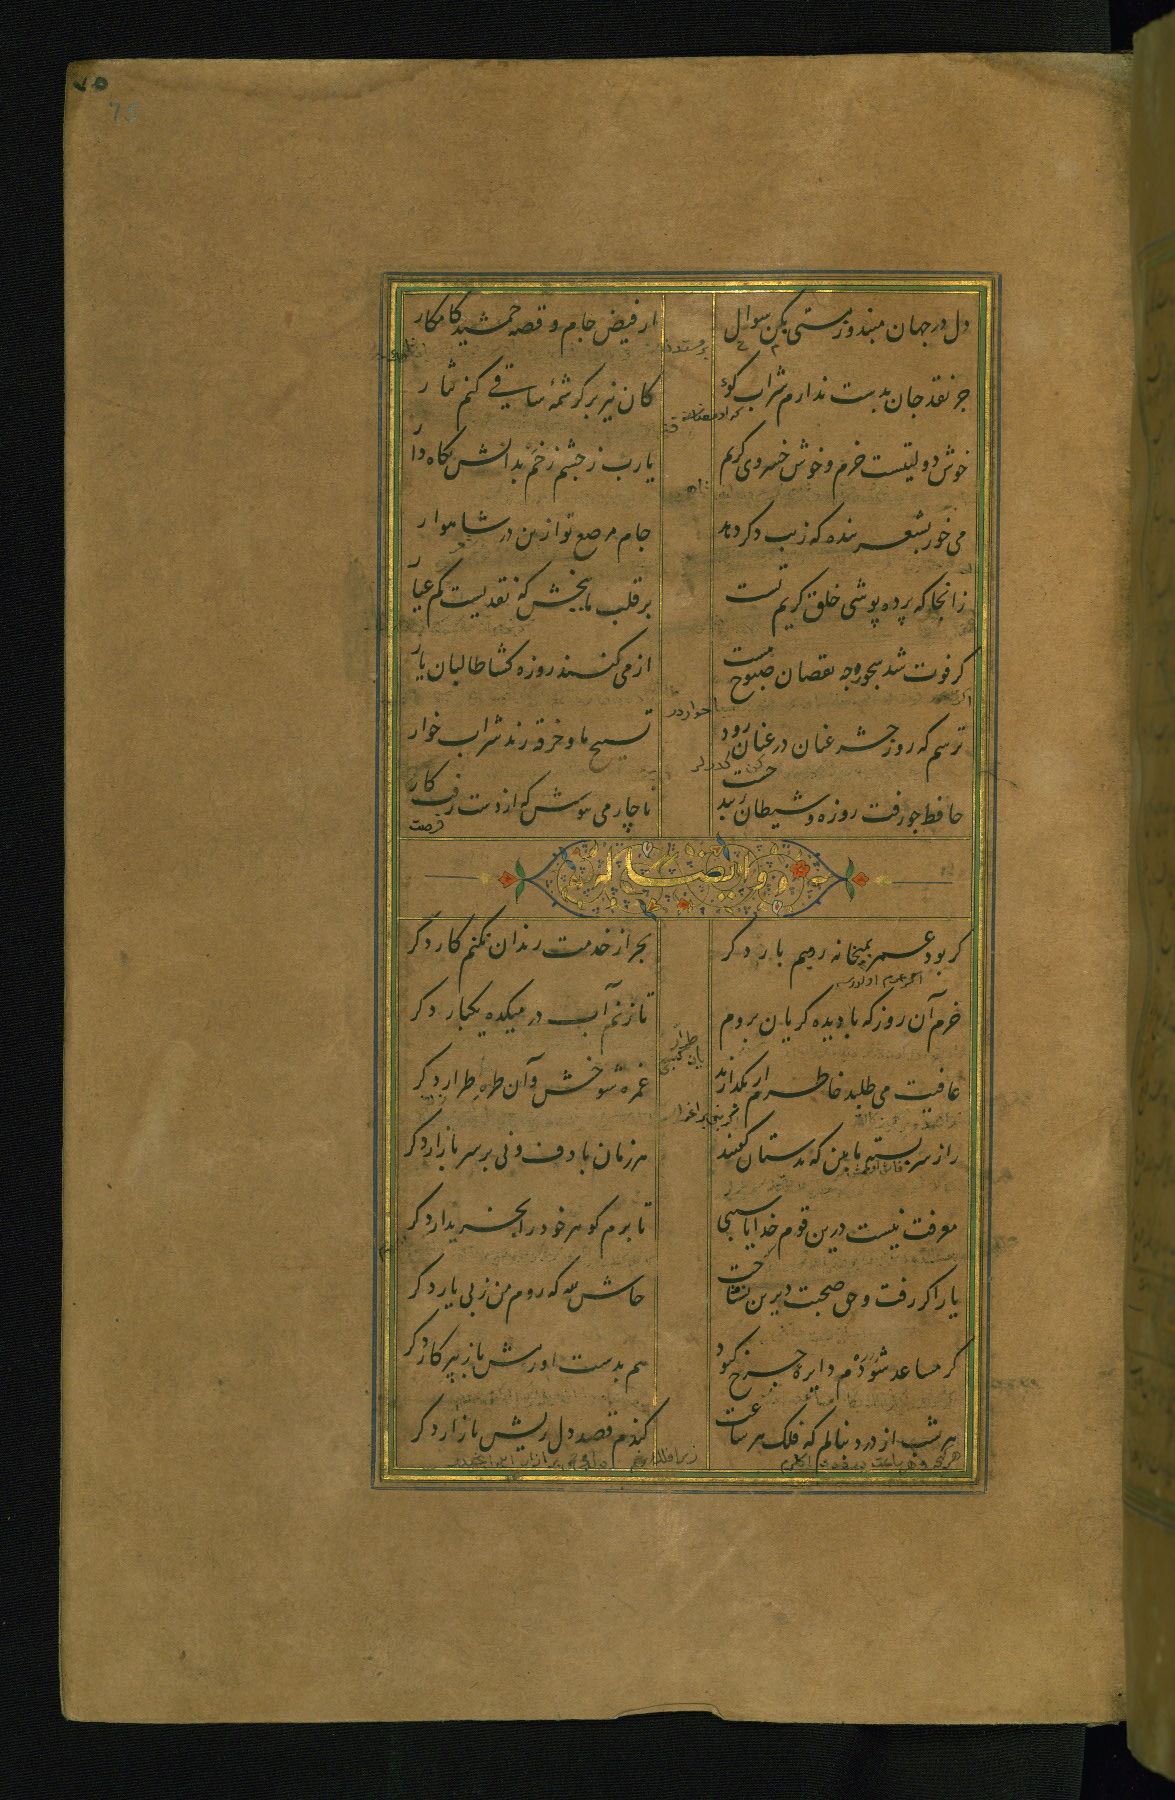 ٧٥
75
دل در جهان مبند و ز مستی بکن سوال
از فیض جام و قصه جمشید کامکار
جز نقد جان بدست ندارم شراب کو
کان نیز بر کرشمهٔ ساقی کنم نثار
خوش دولتیست خرم و خوش خسروی کریم
یارب ز چشم زخم بدانش نگاه دار
می خور بشعر بنده که زیب دگر دهد
جام مرصع تو ازین در شاهوار
زانجا که پرده پوشی خلق کریم تست
بر قلب ما ببخش که نقدیست کم عیار
کر فوت شد سحور چه نقصان صبوح هست
از می کنند روزه کشا طالبان یار
ترسم که روز حشر عنان در عنان رود
تسبیح ما و خرقه رند شراب خوار
حافظ چو رفت روزه و
ناچار می بنوش که از دست رفت کار
فرصت
و له ایضا
کر بود عمر بمیخانه رویم بار دکر
بجز از خدمت رندان نکنم کار دکر
خرم آن روز که با دیده کریان بروم
تا زنم آب در میکده یکبار دکر
عافیت می طلبد خاطرم ار بگذارند
غمزه شوخش و آن طره طرار دکر
راز سر بسته ما بین که بدستان گفتند
هر زمان با دف و نی بر سر بازار دکر
معرفت نیست درین قوم خدایا سببی
تا برم کوهر خود را بخریدار دکر
یار اکر رفت و حق صحبت دیرین نشناخت
حاش لله که روم من ز پی یار دکر
کر مساعد شودم دایره چرخ کبود
هم بدست اورمش باز بپرکار دکر
هر شب از درد بنالم که فلک هر ساعت
کندم قصد دل ریش بازار دکر